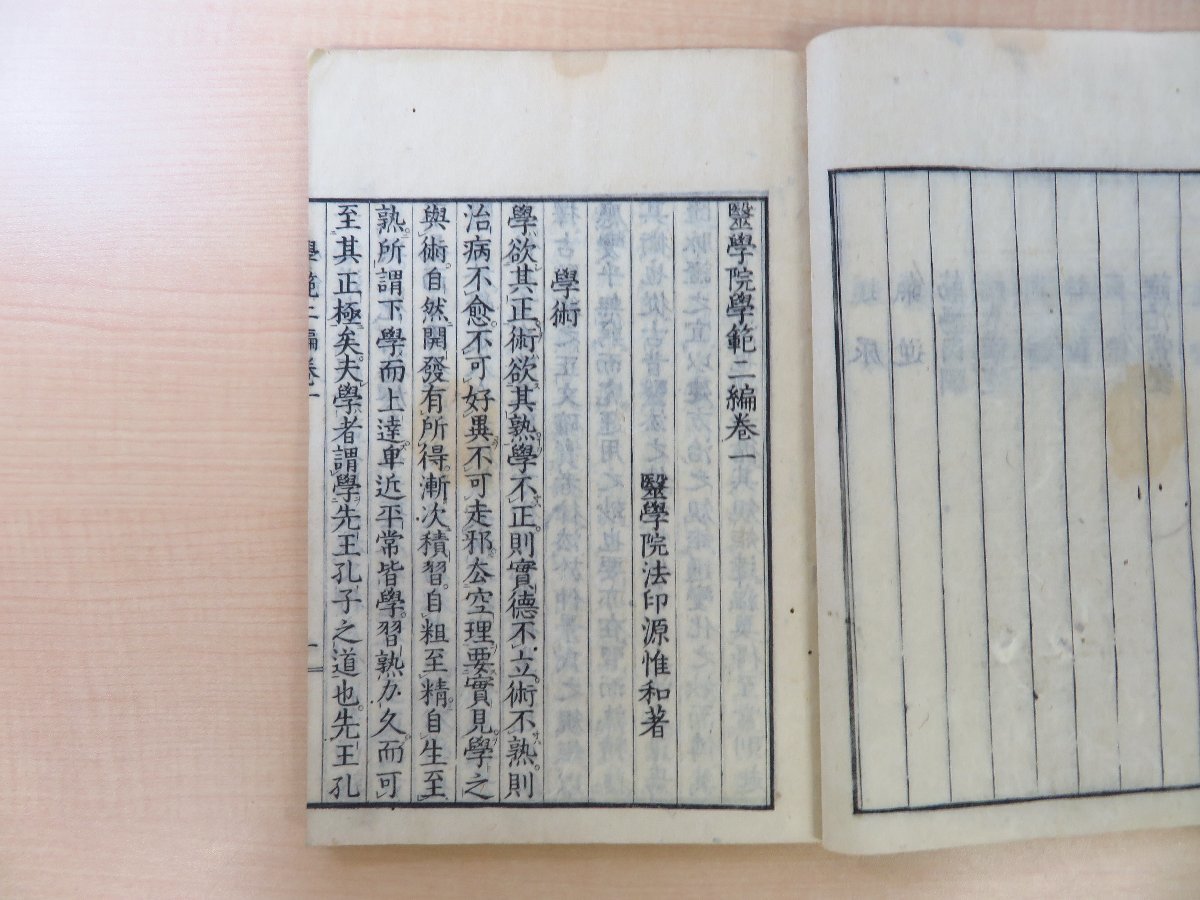 醫學院學範二編卷一
醫學院法印源惟和著
學術
學欲其正術欲其熟學不正則實德不立術不熟則
治病不愈不可好異不可走邪去空理要實見學之
與術自然開發有所得漸次積習自粗至精自生至
熟所謂下學而上達卑近平常皆學習熟力久而可
至其正極矣夫學者謂學先王孔子之道也先王孔
學範二編卷一